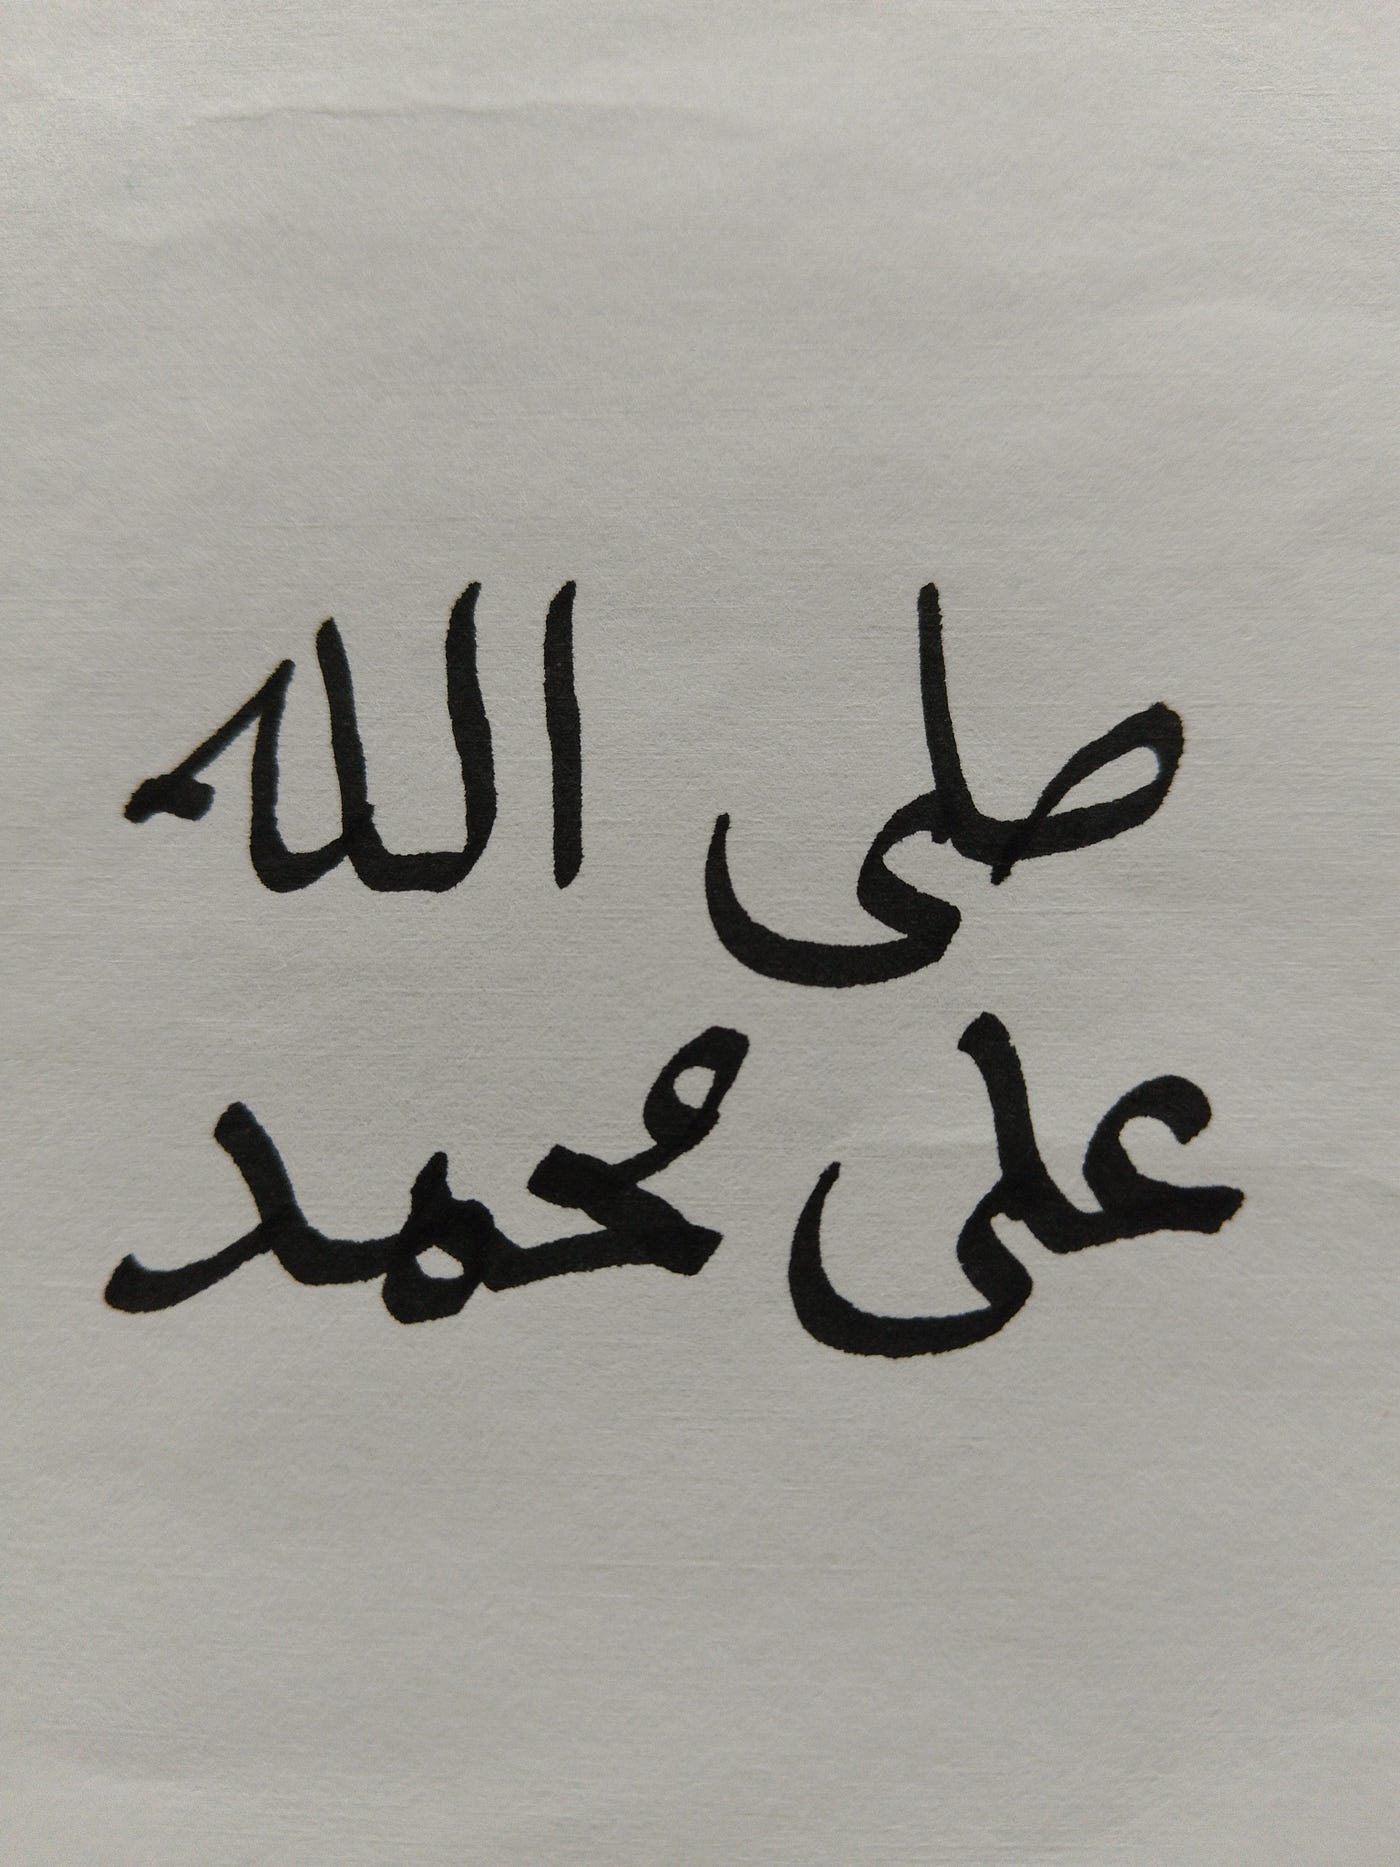 صلى الله
على محمد